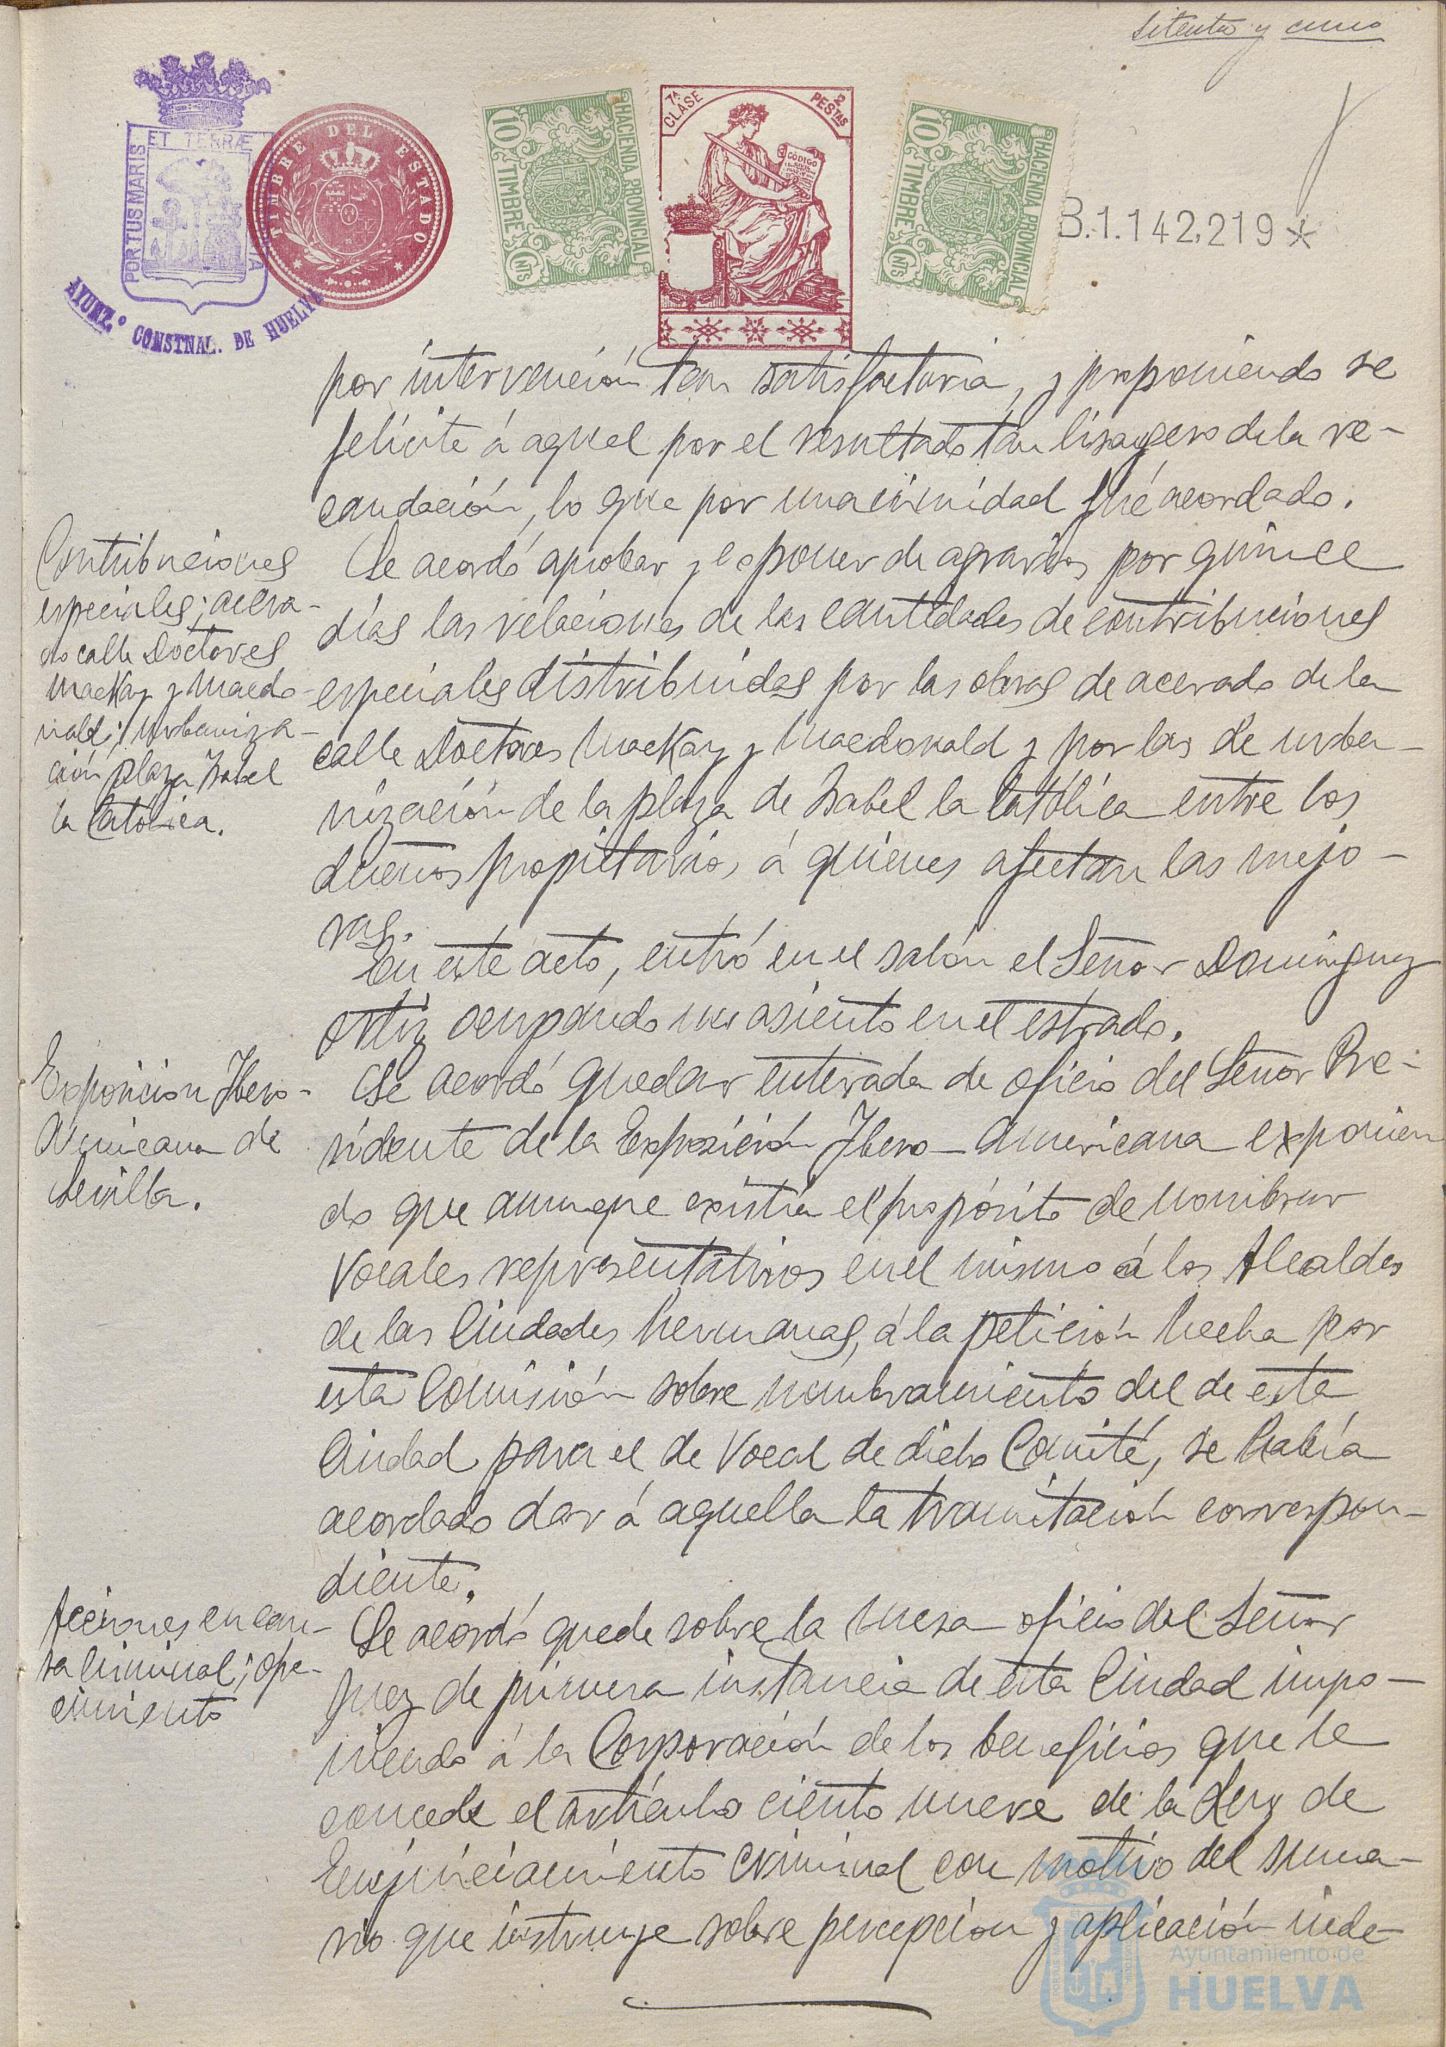 Setenta y cinco
PORTUS MARIS ET TERRÆ
AYUNT.º CONSTNAL. DE HUELVA
TIMBRE DEL ESTADO
10 TIMBRE CNTS HACIENDA PROVINCIAL
7ª CLASE 2 PESTAS
CÓDIGO
10 TIMBRE CNTS HACIENDA PROVINCIAL
B.1.142,219*
por intervención tan satisfactoria, y proponiendo se
felicite á aquel por el resultado tan lisongero de la re-
caudación, lo que por unanimidad fué acordado.
Contribuciones
especiales; acera-
do calle Doctores
Mackay y Macdo-
nald; urbaniza-
ción plaza Isabel
la Católica.
Se acordó aprobar y esponer de agravios por quince
días las relaciones de las cantidades de contribuciones
especiales distribuidas por las obras de acerado de la
calle Doctores Mackay y Macdonald y por las de urba-
nización de la plaza de Isabel la Católica entre los
dueños propietarios á quienes afectan las mejo-
ras.
En este acto, entró en el salón el Señor Dominguez
Ortiz ocupando un asiento en el estrado.
Exposicion Ibero-
Americana de
Sevilla.
Se acordó quedar enterada de oficio del Señor Pre-
sidente de la Exposición Ibero-Americana exponien
do que aunque existía el propósito de nombrar
Vocales representativos en el mismo á los Alcaldes
de las Ciudades hermanas, á la petición hecha por
esta Comisión sobre nombramiento del de esta
Ciudad para el de Vocal de dicho Comité, se había
acordado dar á aquella la tramitación correspon-
diente.
Acciones en cau-
sa criminal; ofre-
cimiento
Se acordó quede sobre la mesa oficio del Señor
Juez de primera instancia de esta Ciudad impo-
niendo á la Corporación de los beneficios que le
concede el artículo ciento nueve de la Ley de
Enjuiciamiento criminal con motivo del suma-
rio que instruye sobre percepcion y aplicación inde-
Ayuntamiento de
HUELVA